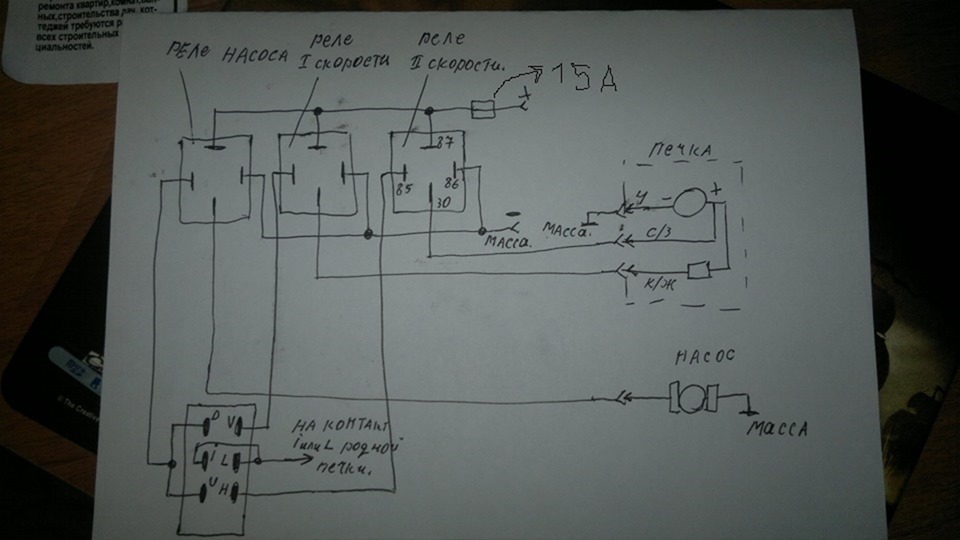 ремонта квартир,
ных,строительства дач, кот-
теджей требуются
всех строительных
циальностей.
РЕЛЕ НАСОСА
реле
I скорости
реле
II скорости.
15 А
+
87
85
86
30
-
МАССА.
МАССА.
ПЕЧКА
Ч
-
+
С/З
К/Ж
НАСОС
МАССА
D
V
i
L
U
H
НА КОНТАКТ
i или L родной
печки.
© The Creative